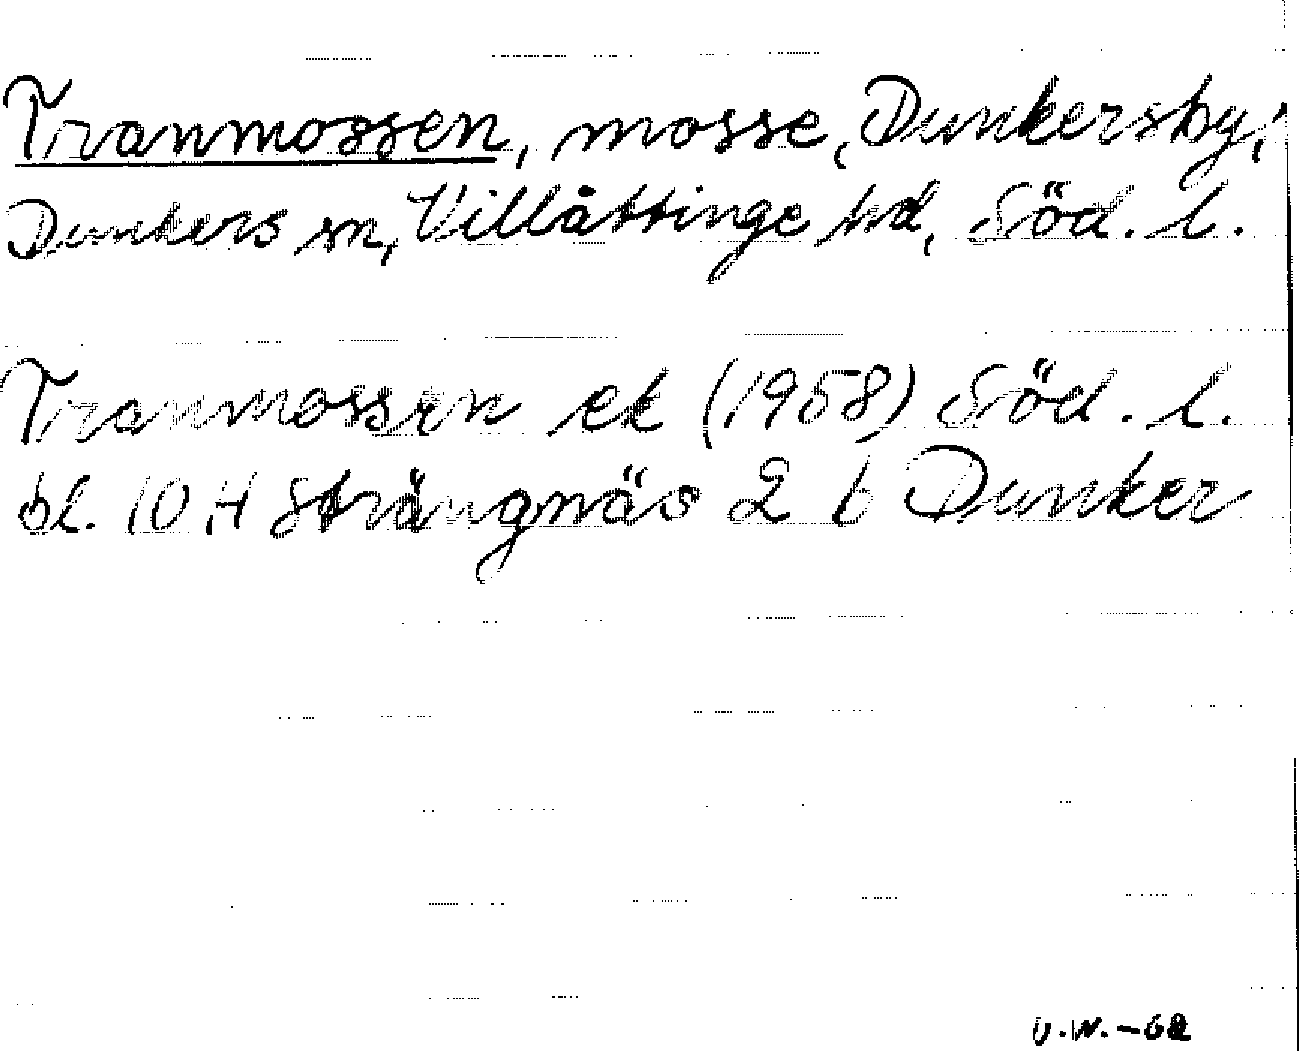 Tranmossen, mosse, Dunkersby,
Dunkers sn, Villåttinge hd, Söd. l.
Tranmossen ek (1958) Söd. l.
bl. 10 H Strängnäs 2 b Dunker
U.W. - 62